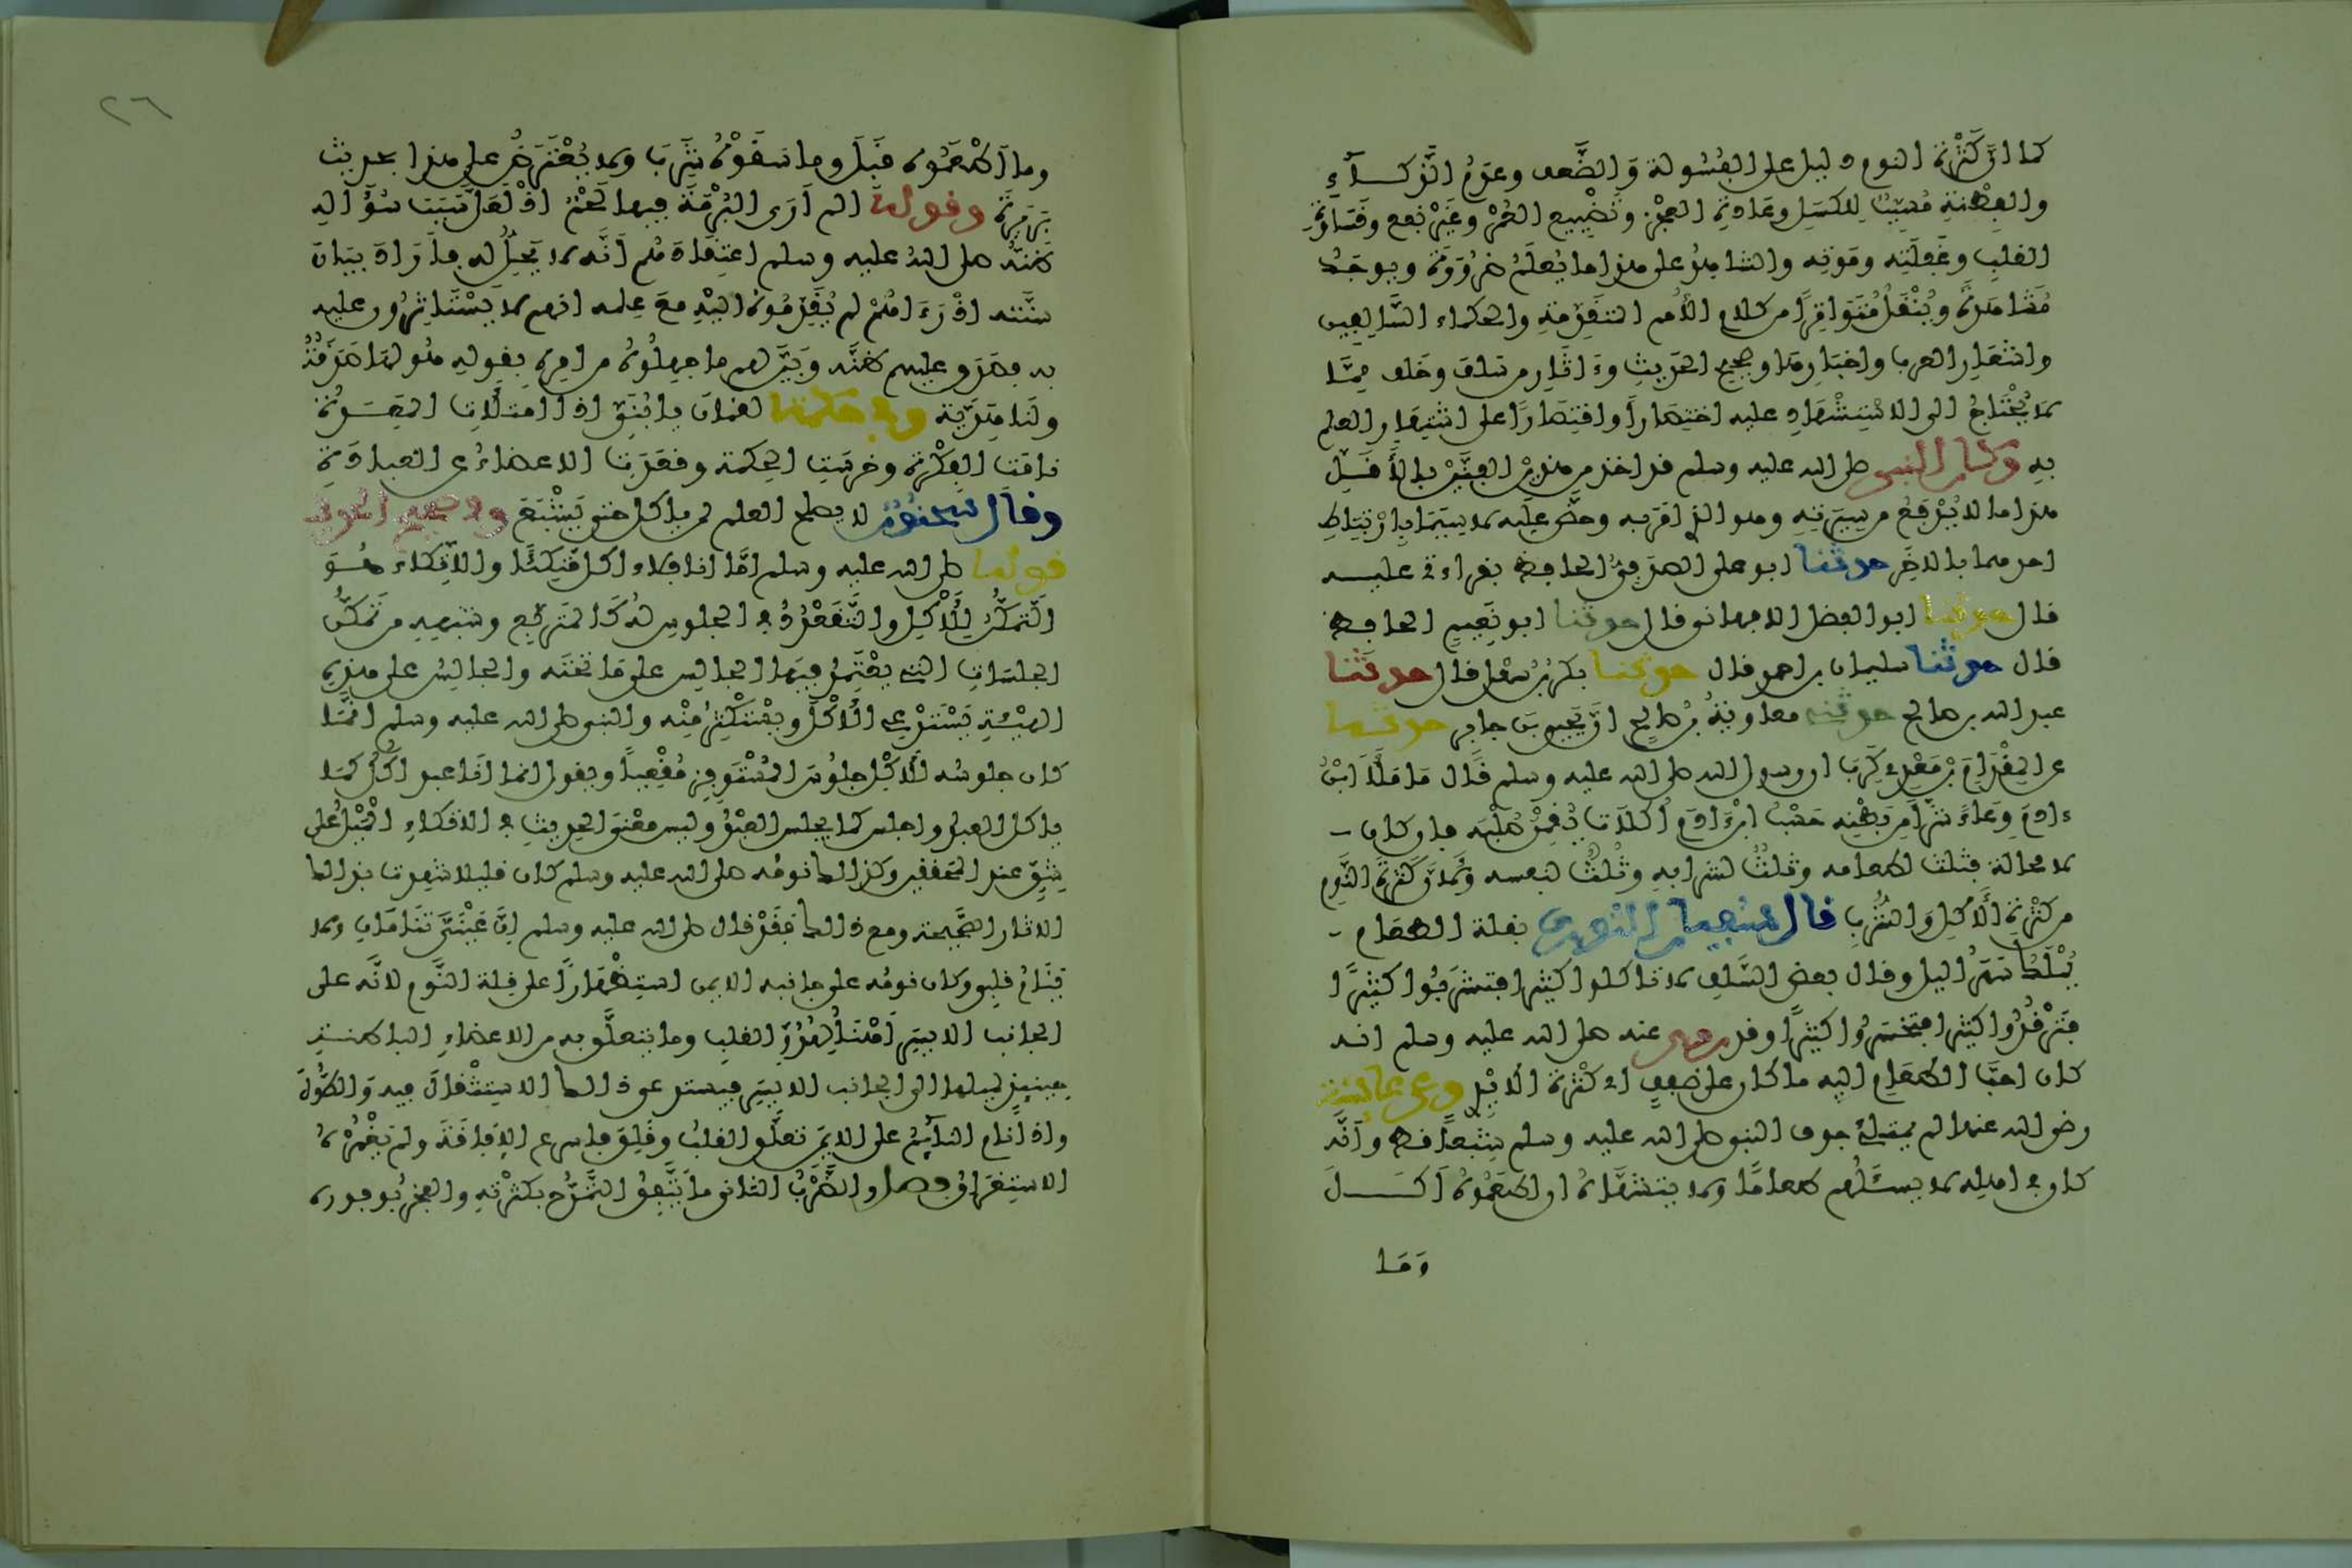 كما ان كَثْرَة النوم دليل على الفُسُولة وَالضَّعف وعدم الذَّكَاءِ
والفِطْنَةِ مُسَبِّبٌ لِلكَسَلِ وعَادةِ العَجْزِ وتَضْيِيع العُمْر في غَيْر نفع وقَسَاوةِ
القلبِ وغَفْلَتِه ومَوْتِه والشاهدُ على هذا ما يُعْلَمُ ضَرُورَةً ويوجَدُ
مُشَاهَدَةً ويُنْقَلُ مُتَوَاتِراً من كلام الأُمم المتقَدِّمَةِ والحكماء السَّالِفِين
واشعَارِ العرب واخبَارِهَا وصحيح الحَدِيثِ وءَاثَارِ من سَلَفَ وخَلَف مِمَّا
لا يُحْتَاجُ الى الاسْتِشْهَادِ عليه اختِصَاراً واقتِصَاراً على اشتِهَارِ العلم
بِهِ وكان النبى صلى الله عليه وسلم قد اخذ من هذين الفَنَّيْنِ بالأَقَلِّ
هذا ما لا يُدْفَعُ من سِيرَتِهِ وهو الذى أمَرَ به وحضَّ عليه لا سِيَّمَا بِارْتِبَاطِ
احدهما بالاخَرِ حدثنا ابو على الصَّدَفِىُّ الحافظ بقراءتى عليه
قال حدثنا ابو الفضل الاصبهانى قال حدثنا ابو نُعَيمٍ الحافظ
قال حدثنا سليمان بن احمد قال حدثنا بكرُ بْنُ سَهْلٍ قال حدثنا
عبد الله بن صالح حدثنى معاويةُ بنُ صَالِحٍ انَّ يَحيى بنَ جابر حدثه
عن المِقْدَامِ بْنِ مَعْدِى كَرِبَ ان رسول الله صلى الله عليه وسلم قَال مَا مَلَأَ ابْنُ
ءادَمَ وِعَاءً شَرًّا مِن بَطْنِه حَسْبُ ابْنِ ءَادَمَ أُكُلَاتٌ يُقِمْنَ صُلْبَه فان كان
لا محالة فثلث لطعامه وثُلثٌ لشرابه وثُلُثٌ لنفسه وَلأنَّ كَثْرَةَ النَّوم
من كَثْرةِ الأَكْلِ وَالشُّرْبِ قال سفيان الثورى بقلة الطعام
يُمْلَكُ سَهَرُ اليل وقال بعض السَّلَفِ لا تاكلوا كثيرا فتَشْرَبُوا كثيرًا
فَتَرْقُدُوا كثيرا فتَخْسَرُوا كثيرًا وقد روى عنه صلى الله عليه وسلم انه
كان احبَّ الطعَامِ اليه ما كان على ضَفَفٍ اى كَثْرة الأَيْدِى وعن عائشة
رضى الله عنها لم يمتلئْ جوف النبى صلى الله عليه وسلم شِبَعاً قط وانَّه
كان فى اهله لا يسئَلُهم طعامًا ولا يتشهَّاهُ ان اطعَمُوهُ اَكَلَ
وَمَا
٢٦
وما أَطْعَمُوه قَبِلَ وما سَقَوْهُ شَرِبَ ولا يُعْتَرَضُ على هذا بحديث
بَرِيرَةَ وقوله الم اَرَ البُرْمَةَ فيها لَحْمٌ اذْ لَعَلَّ سَبَبَ سُؤَالِهِ
ظَنُّهُ صلى الله عليه وسلم اعتِقَادَهُم اَنَّه لا يَحِلُّ له فاَرَادَ بيَانَ
سنَّته اذْ رَءَاهُمْ لم يُقَدِّمُوهُ اليْهِ مَعَ عِلمه انهم لا يَسْتَاثِرُون عليه
به فصَدَّقَ عليهم ظنَّه وَبَيَّنَ لهم ما جهِلُوهُ من امره بِقَولِهِ هُو لهَا صَدَقَةٌ
ولَنَا هَدِيَّة وفى حكمة لقمَانَ يا بُنَىَّ اذا امتَلَأتِ المَعِدَةُ
نامَتِ الفِكْرَة وخرسَتِ الحكمة وقعَدَتِ الاعضاءُ عن العبادَةِ
وقال سحنون لا يصلح العلم لمن ياكل حتى يَشْبَعَ وفى صحيح الحديث
قوله صلى الله عليه وسلم امَّا انا فلاء اكل مُتَّكِئًا والاتِّكَاء هُوَ
التَّمَكُّنُ لِلأَكْلِ والتَّقَعْدُدُ فى الجلوس لَهُ كَالمتَرَبِّع وشبهِهِ من تَمَكُّنِ
الجلسَاتِ التى يعْتَمِدُ فيهَا الجالِس على مَا تحتَه والجالِسُ على هذِهِ
الهيْئةِ يَسْتَدْعِى الأكْلَ ويسْتَكْثِرُ مِنْه والنبى صلى الله عليه وسلم انَّمَا
كان جلوسُه للأَكْلِ جلُوسَ المُسْتَوفِزِ مُقْعِياً ويقول انما انَا عبد اكُلُ كمَا
ياكل العبد واجلس كما يجلس العَبْدُ وليس معْنى الحديثِ فى الاتكاءِ المَيْلُ على
شِقٍّ عند المحققين وكذالك نومُه صلى الله عليه وسلم كان قليلا شهِدت بذالك
الاثار الصَّحيحة ومع ذالك فَقَدْ قال صلى الله عليه وسلم اِنَّ عَيْنَىَّ تَنَامَانِ ولا
يَنَامُ قلبِى وكان نومُه على جانبه الايمن استِظْهَاراً على قِلة النَّوم لانَّه على
الجانب الايسَرِ أَهْنَأُ لِهُدُوِّ القلبِ وما يتعلَّق به من الاعضاءِ الباطنةِ
حِينئذٍ لميلها الى الجانب الايسَرِ فيستدعى ذالك الاستِثْقالَ فيه وَالطُّولَ
واذا نَامَ النائِمُ على الايمَنِ تعلَّق القلبُ وقَلِقَ فاسرع الاِفَاقَةَ ولم يَغْمُرْهُ
الاستِغرَاقُ فصل والضَّرْبُ الثانى ما يَتَّفِقُ التَّمَدُّح بكثْرَتِهِ والفخرُ بوفوره